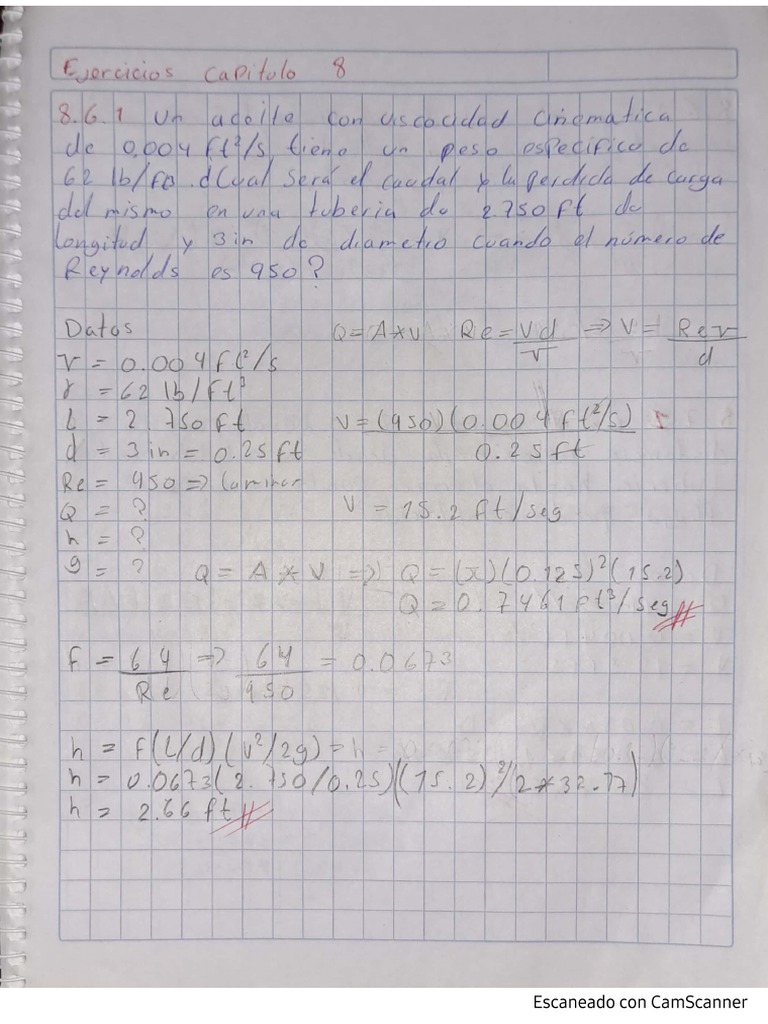 Ejercicios Capitulo 8
8.6.1 Un aceite con viscocidad cinematica
de 0.004 ft²/s tiene un peso especifico de
62 lb/ft3. ¿Cual será el caudal y la perdida de carga
del mismo en una tuberia de 2.750 ft de
longitud y 3 in de diametro cuando el número de
Reynolds es 950?
Datos
Q = A*V Re = Vd/ν => V = Re ν/d
ν = 0.004 ft²/s
γ = 62 lb/ft³
L = 2.750 ft
V = (950)(0.004 ft²/s)/0.25 ft
d = 3 in = 0.25 ft
Re = 950 => Laminar
Q = ?
V = 15.2 ft/seg
h = ?
g = ? Q = A * V => Q = (π)(0.125)²(15.2)
Q = 0.7461 ft³/seg
f = 64/Re => 64/950 = 0.0673
h = f(L/d)(v²/2g) =
h = 0.0673(2.750/0.25)((15.2)²/2*32.17)
h = 2.66 ft
Escaneado con CamScanner